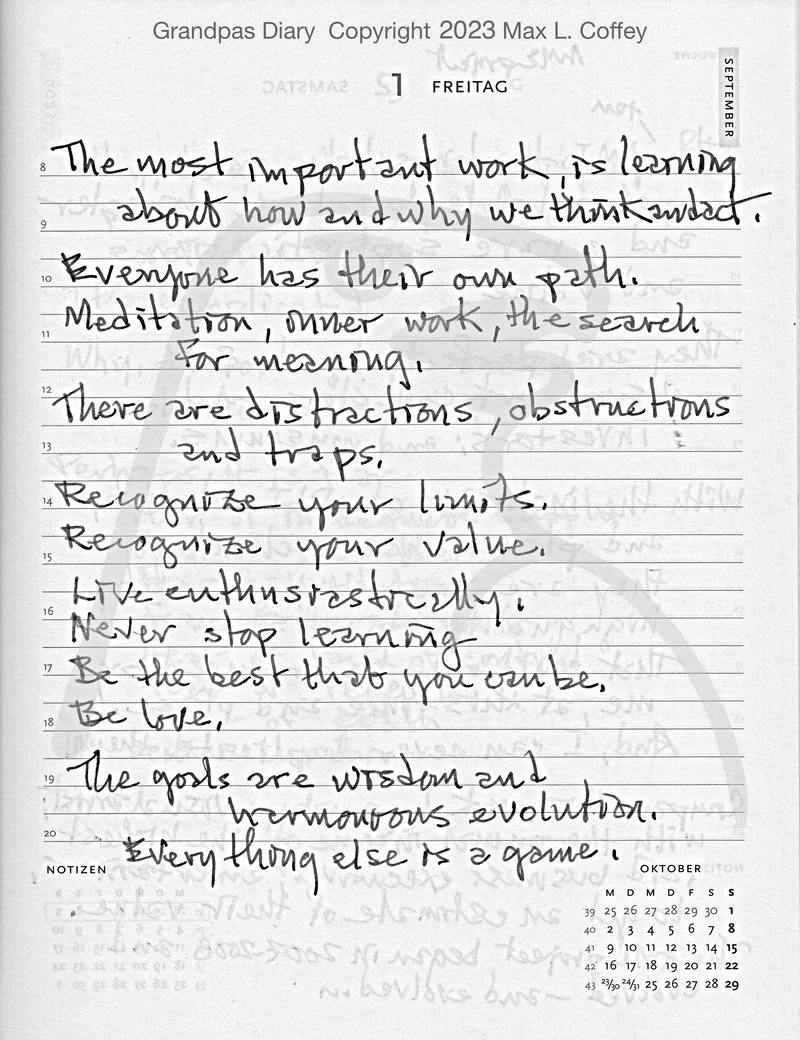 Grandpas Diary Copyright 2023 Max L. Coffey
1 FREITAG
SEPTEMBER
8 The most important work, is learning
about how and why we think and act.
9
10 Everyone has their own path.
11 Meditation, inner work, the search
for meaning.
12 There are distractions, obstructions
13 and traps.
14 Recognize your limits.
15 Recognize your value.
Live enthusiastically.
16 Never stop learning
17 Be the best that you can be.
18 Be love.
19 The goals are wisdom and
harmonous evolution.
20 Everything else is a game.
NOTIZEN
OKTOBER
M D M D F S S
39 25 26 27 28 29 30 1
40 2 3 4 5 6 7 8
41 9 10 11 12 13 14 15
42 16 17 18 19 20 21 22
43 23/30 24/31 25 26 27 28 29